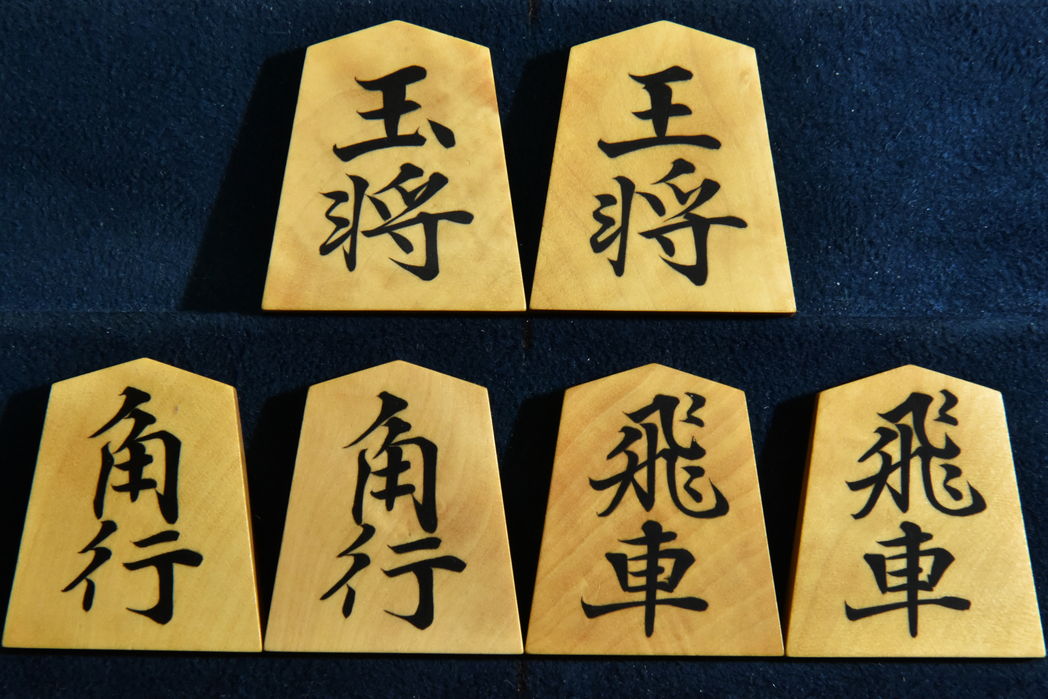 玉将
王将
角行
角行
飛車
飛車